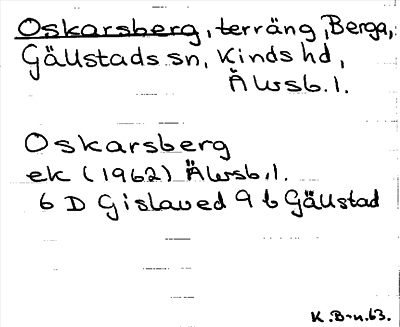 Oskarsberg, terräng, Berga,
Gällstads sn, Kinds hd,
Älvsb. l.
Oskarsberg
ek (1962) Älvsb. l.
6 D Gislaved 9 b Gällstad
K. B-n. 63.